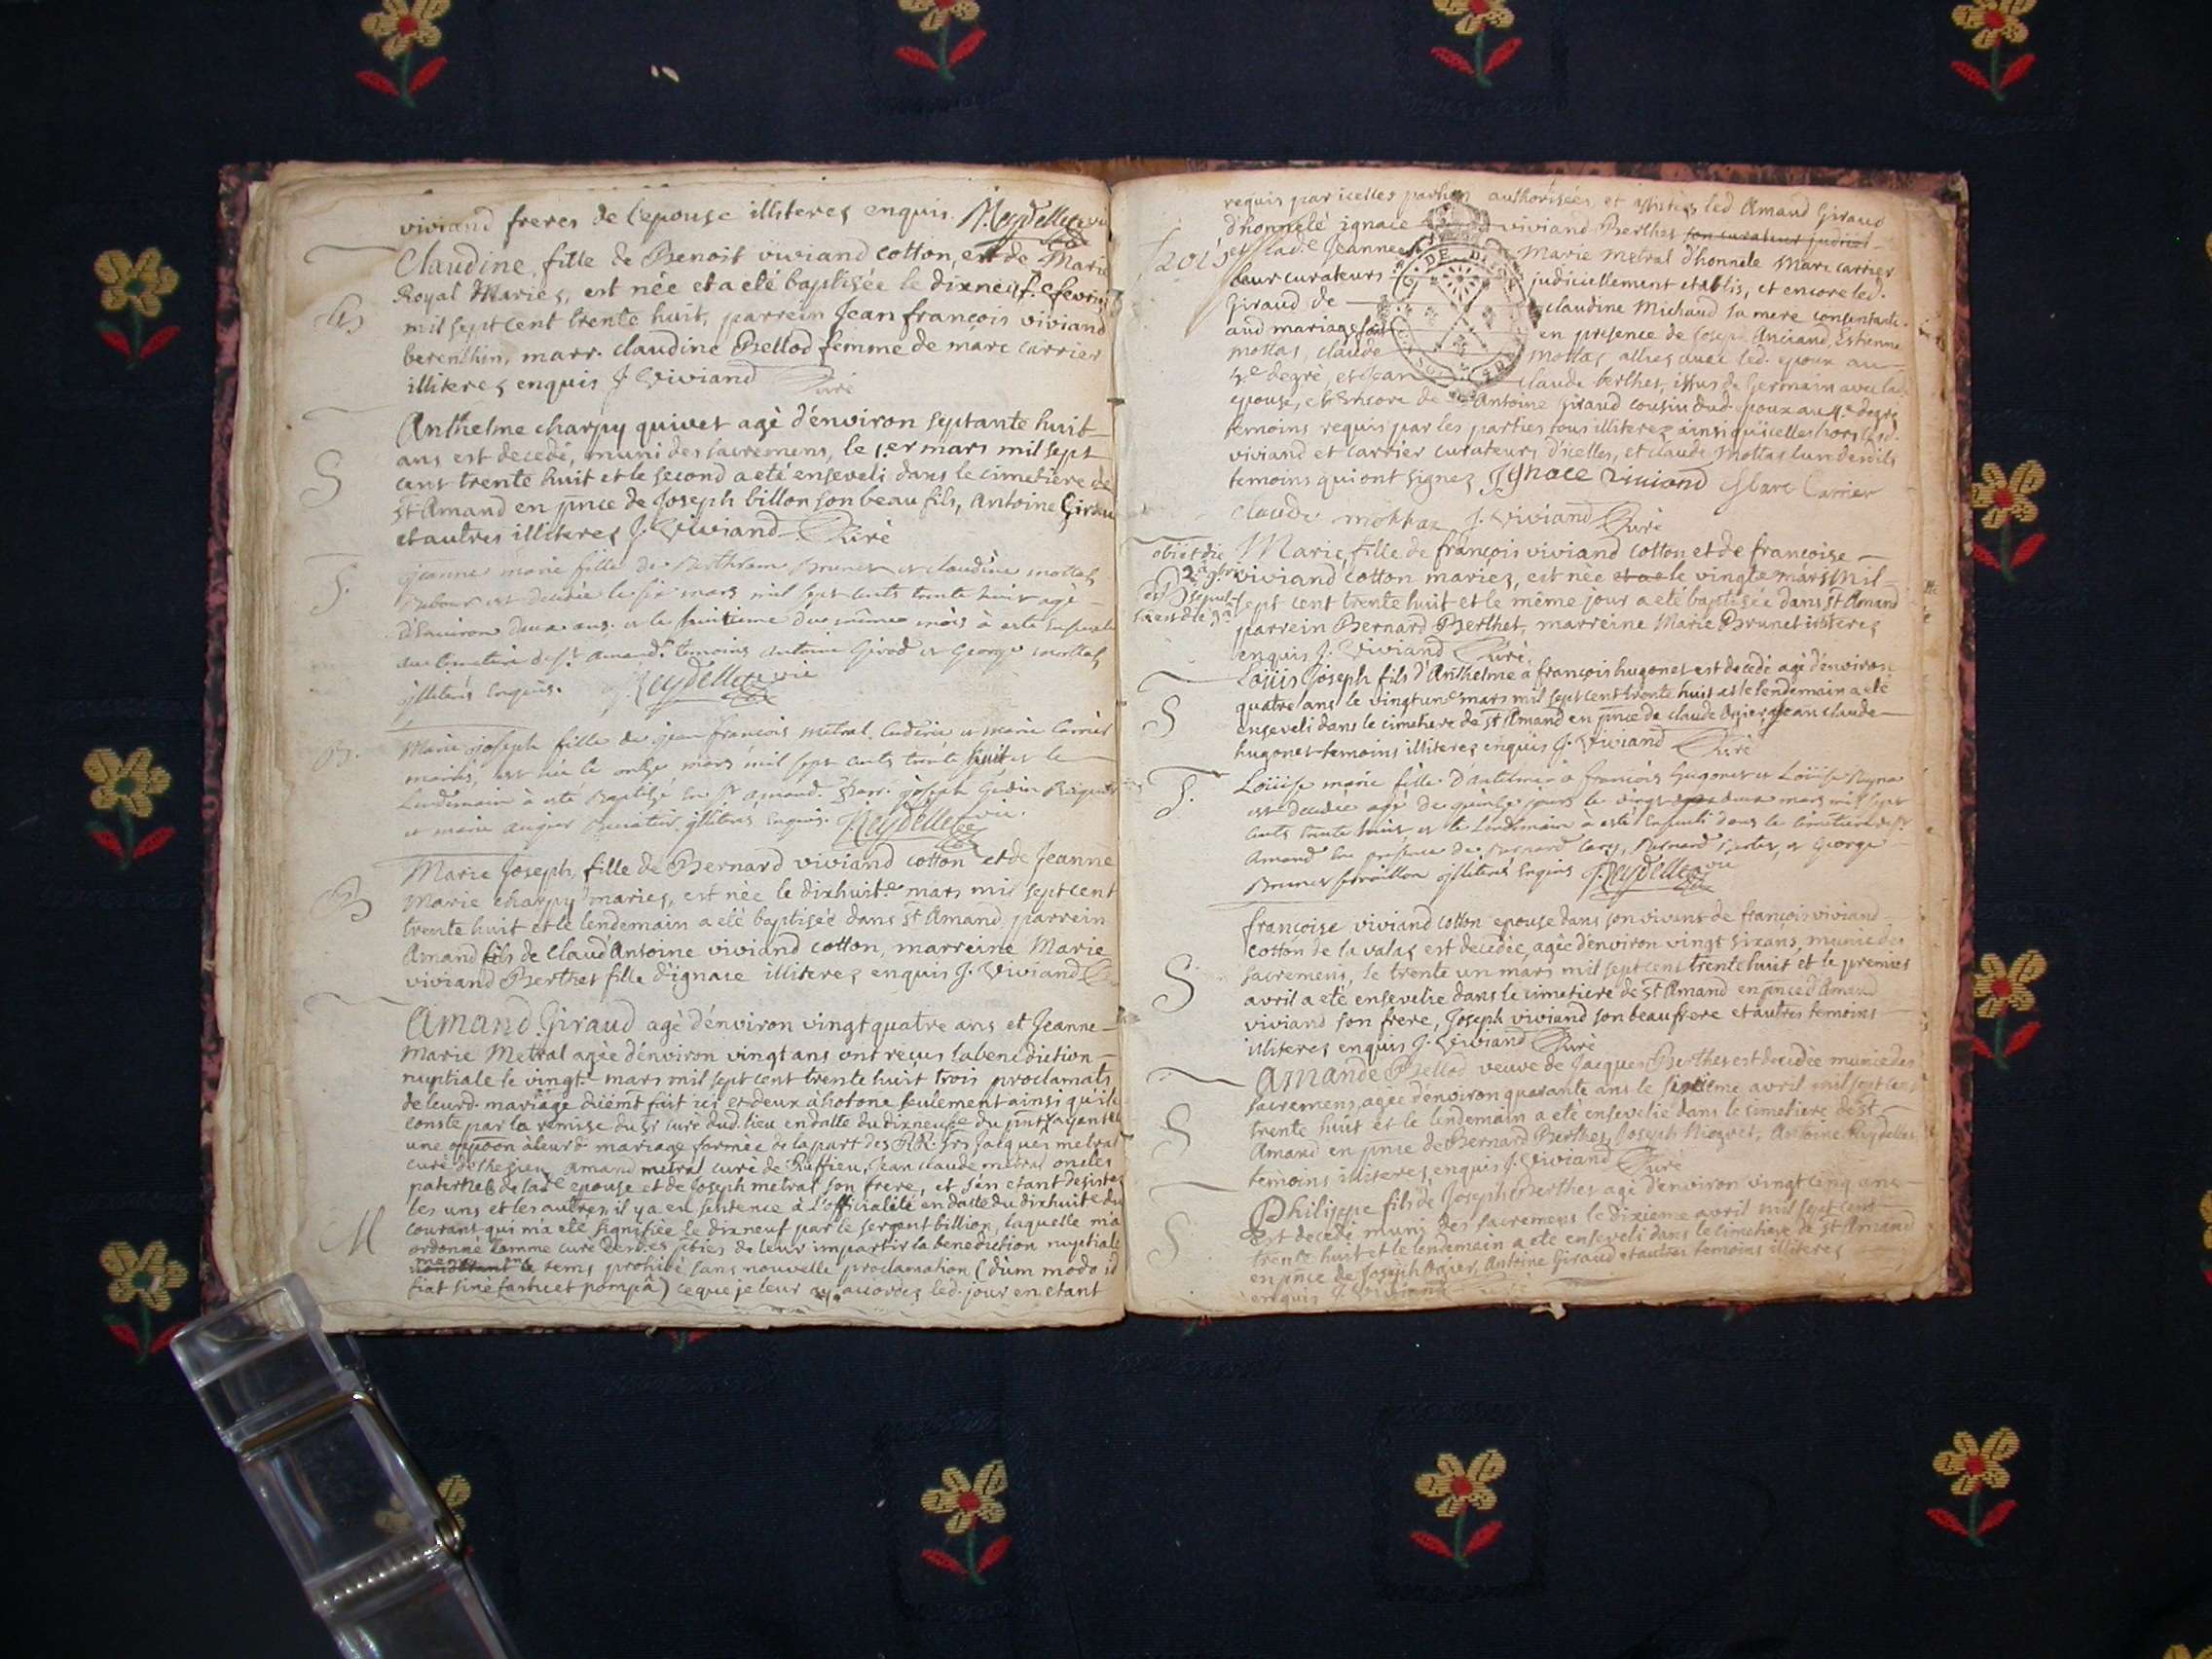 viviand freres de l'epouse illiteres enquis. Reydellet vic
Claudine, fille de Benoit viviand cotton, et de Marie
Royal Mariés, est née et a eté baptisée le dixneuf.e fevrier
B
mil sept cent trente huit, parrein Jean françois viviand
berenthin, marr. claudine Bellod femme de marc carrier
illiteres enquis J. Viviand Curé
Anthelme charpy quivet agé d'environ septante huit
ans est decedé, muni des sacremens, le 1.er mars mil sept
S
cent trente huit et le second a eté enseveli dans le cimetiere de
st Amand en pnce de Joseph billon son beau fils, Antoine Girau
et autres illiteres J. Viviand Curé
Jeanne marie fille de Berthram Brunet et claudine mottas
S.
est decedée le six mars mil sept cents trente huit agé
d'Environ deux ans et le huitieme du même mois à esté Ensevelie
au cimetiere de st Amand. temoins antoine Girod et George mottas
illiterés Enquis. Reydellet vic
B.
Marie joseph fille de jean françois metral et marie Carrier
mariés, est née le onze mars mil sept cents trente huit et le
Lendemain à esté Baptisé En st amand. parr. joseph
et marie augier illiterés Enquis. J. Reydellet vic.
Marie Joseph, fille de Bernard viviand cotton et de Jeanne
B
Marie charpy mariés, est née le dixhuit.e mars mil sept cent
trente huit et le lendemain a eté baptisée dans st Amand parrein
Amand fils de Claud Antoine viviand cotton, marreine Marie
viviand Berthet fille d'ignace illiteres enquis J. Viviand C
Amand Giraud agé d'environ vingt quatre ans et Jeanne
Marie Metral agée d'environ vingt ans ont reçus la benediction
nuptiale le vingt.e mars mil sept cent trente huit trois proclamats
de leurd. mariage duëmt fait ici et deux à hotone seulement ainsi qu'il
conste par la remise du sr curé dud. lieu en datte du dixneufe du pnt, ayant eu
une oppoon à leurd. mariage formée de la part des RR. frs Jacques metral
curé de Amand metral curé de Ruffieu, Jean claude metral oncles
paternels de lad.e epouse et de Joseph metral son frere, et s'en etant desistés
les uns et les autres il y a eu sentence à l'officialité en datte du dixhuite du
M
courant qui m'a eté signifiée le dixneuf par le sergent billion, laquelle m'a
ordonné comme curé desd.es pties de leur impartir la benediction nuptiale
le tems prohibé sans nouvelle proclamation (dum modo id
fiat siné fastu et pompâ) ce que je leur ay accordés led. jour en etant
requis par icelles parties authorisées, et assistées led Amand Giraud
d'honnelé ignace viviand Berthet son curateur judiciel
et lad.e Jeanne Marie metral d'honnele Marc carrier
leur curateurs judiciellement etablis, et encore led.
Giraud de claudine Michaud sa mere consentante
aud mariage fait en presence de Joseph Anciand, Estienne
mottas, claude mottas alliés avec led. epoux au
3.e degré, et Jean claude berthet, issus de Germain avec lad.
epouse, et Encore de Antoine Giraud cousin dud. epoux au 4.e degré
temoins requis par les parties tous illiterez ainsi qu'icelles hors lesd.
viviand et carrier curateurs d'icelles, et claude Mottas l'un desdits
temoins qui ont signez Ignace viviand Marc Carrier
claude mottaz J. Viviand Curé
obiit die
Marie, fille de françois viviand cotton et de françoise
viviand cotton mariés, est née et a e le vingte mars mil
sept cent trente huit et le même jour a eté baptisée dans st Amand
parrein Bernard Berthet, marreine Marie Brunet illiteres
enquis J. Viviand Curé.
Loüis Joseph fils d'Anthelme à françois hugonet est decedé agé d'environ
S
quatre ans le vingt un.e mars mil sept cent trente huit et le lendemain a eté
enseveli dans le cimetiere de st Amand en pnce de claude Ogier, Jean claude
hugonet temoins illiteres enquis J. Viviand Curé
S.
Loüise marie fille d'antelme à françois hugonet et Loüise
est decedée agé de quinze jours le vingt deux mars mil sept
cents trente huit, et le Lendemain à esté Enseveli dans le cimetiere de st
Amand En presence de Bernard Bernard et George
Brunet illiterés Enquis J. Reydellet vic
françoise viviand cotton epouse dans son vivant de françois viviand
cotton de la valas est decedée, agée d'environ vingt six ans, munie des
S
sacremens, le trente un mars mil sept cent trente huit et le premier
avril a eté ensevelie dans le cimetiere de st Amand en pnce d'Amand
viviand son frere, Joseph viviand son beaufrere et autres temoins
illiteres enquis J. Viviand Curé
Amande Bellod veuve de Jacques Berthet est decedée munie des
sacremens, agée d'environ quarante ans le sixieme avril mil sept cent
S
trente huit et le lendemain a eté ensevelie dans le cimetiere de st
Amand en pnce de Bernard Berthet, Joseph Antoine Reydellet
temoins illiteres, enquis J. Viviand Curé
Philippe fils de Joseph Berthet agé d'environ vingt cinq ans
S
est decedé muni des sacremens le dixieme avril mil sept cent
trente huit et le lendemain a eté enseveli dans le cimetiere de st Amand
en pnce de Joseph Ogier, Antoine Giraud et autres temoins illiteres
enquis J. Viviand